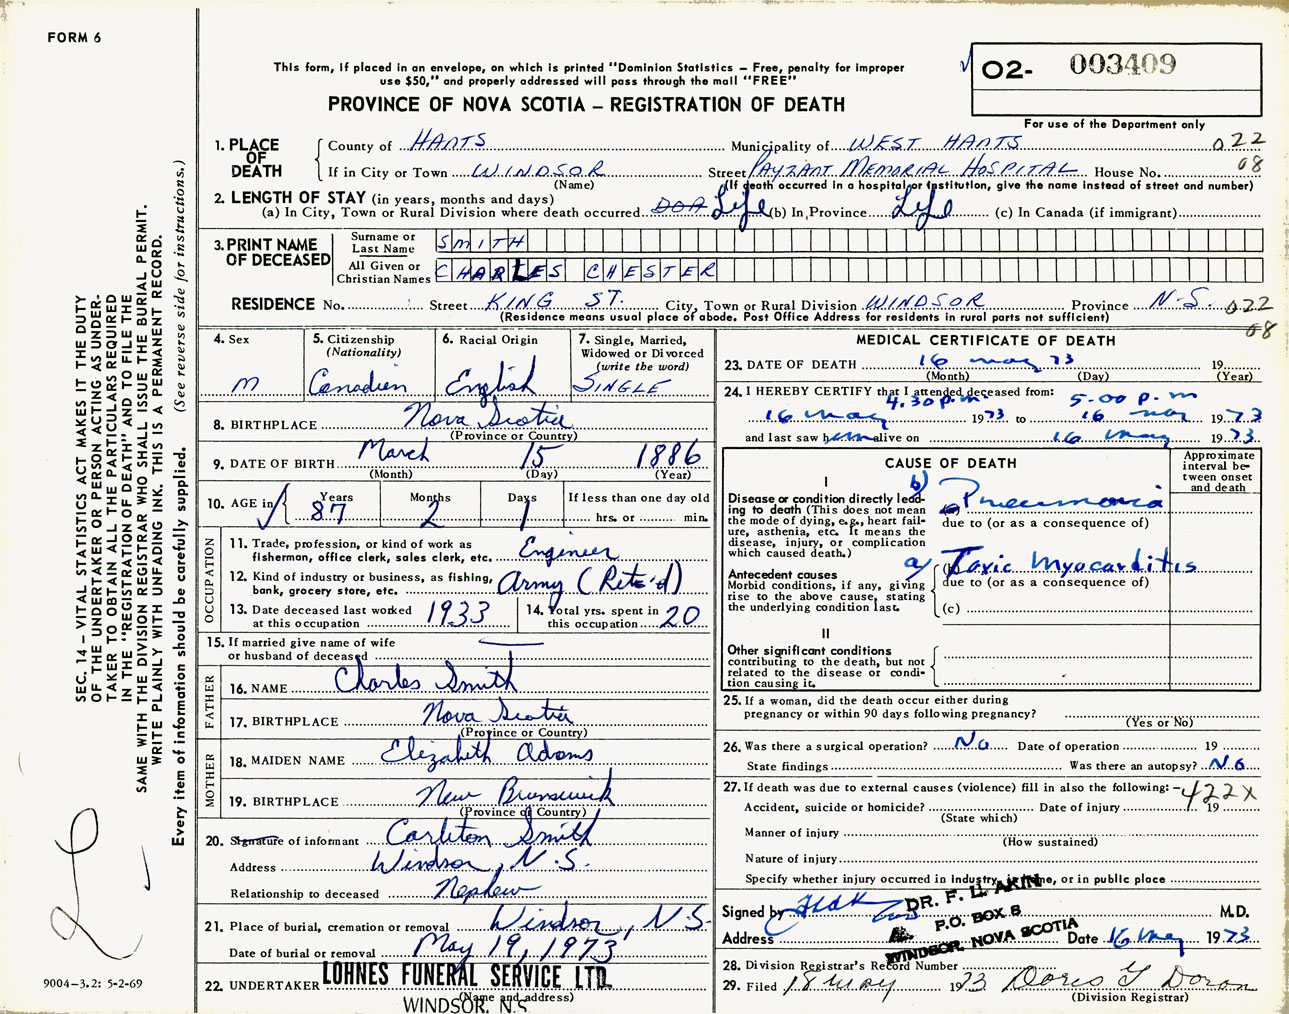 FORM 6
This form, if placed in an envelope, on which is printed "Dominion Statistics – Free, penalty for improper
use $50," and properly addressed will pass through the mail "FREE"
PROVINCE OF NOVA SCOTIA – REGISTRATION OF DEATH
O2- 003409
For use of the Department only
1. PLACE OF DEATH
County of HANTS Municipality of WEST HANTS 022
If in City or Town WINDSOR Street PAYZANT MEMORIAL HOSPITAL House No. 08
(Name) (If death occurred in a hospital or institution, give the name instead of street and number)
2. LENGTH OF STAY (in years, months and days)
(a) In City, Town or Rural Division where death occurred DOA Life (b) In Province Life (c) In Canada (if immigrant)
3. PRINT NAME OF DECEASED
Surname or Last Name SMITH
All Given or Christian Names CHARLES CHESTER
RESIDENCE No. Street KING ST. City, Town or Rural Division WINDSOR Province N.S. 022
(Residence means usual place of abode. Post Office Address for residents in rural parts not sufficient) 08
4. Sex M
5. Citizenship (Nationality) Canadian
6. Racial Origin English
7. Single, Married, Widowed or Divorced (write the word) SINGLE
8. BIRTHPLACE Nova Scotia
(Province or Country)
9. DATE OF BIRTH March 15 1886
(Month) (Day) (Year)
10. AGE in Years 87 Months 2 Days 1 If less than one day old hrs. or min.
OCCUPATION
11. Trade, profession, or kind of work as fisherman, office clerk, sales clerk, etc. Engineer
12. Kind of industry or business, as fishing, bank, grocery store, etc. Army (Ret'd)
13. Date deceased last worked at this occupation 1933
14. Total yrs. spent in this occupation 20
15. If married give name of wife or husband of deceased
FATHER
16. NAME Charles Smith
17. BIRTHPLACE Nova Scotia
(Province or Country)
MOTHER
18. MAIDEN NAME Elizabeth Adams
19. BIRTHPLACE New Brunswick
(Province or Country)
20. Signature of informant Carleton Smith
Address Windsor, N.S.
Relationship to deceased Nephew
21. Place of burial, cremation or removal Windsor, N.S.
Date of burial or removal May 19, 1973
22. UNDERTAKER LOHNES FUNERAL SERVICE LTD.
(Name and address)
WINDSOR, N.S.
MEDICAL CERTIFICATE OF DEATH
23. DATE OF DEATH 16 May 73 19
(Month) (Day) (Year)
24. I HEREBY CERTIFY that I attended deceased from:
4.30 p.m. 5.00 p.m
16 May 1973 to 16 May 1973
and last saw him alive on 16 May 1973
CAUSE OF DEATH
Approximate interval between onset and death
I
Disease or condition directly leading to death (This does not mean the mode of dying, e.g., heart failure, asthenia, etc. It means the disease, injury, or complication which caused death.)
b) Pneumonia
due to (or as a consequence of)
Antecedent causes
Morbid conditions, if any, giving rise to the above cause, stating the underlying condition last.
a) (b) Toxic Myocarditis
due to (or as a consequence of)
(c)
II
Other significant conditions
contributing to the death, but not related to the disease or condition causing it.
25. If a woman, did the death occur either during
pregnancy or within 90 days following pregnancy?
(Yes or No)
26. Was there a surgical operation? No Date of operation 19
State findings Was there an autopsy? No
27. If death was due to external causes (violence) fill in also the following: - 422X
Accident, suicide or homicide? Date of injury 19
(State which)
Manner of injury
(How sustained)
Nature of injury
Specify whether injury occurred in industry, in home, or in public place
Signed by M.D.
DR. F. L. AKIN
P.O. BOX 8
WINDSOR, NOVA SCOTIA
Address Date 16 May 1973
28. Division Registrar's Record Number
29. Filed 18 May 1973 Doris Y Doran
(Division Registrar)
SEC. 14 – VITAL STATISTICS ACT MAKES IT THE DUTY
OF THE UNDERTAKER OR PERSON ACTING AS UNDER-
TAKER TO OBTAIN ALL THE PARTICULARS REQUIRED
IN THE "REGISTRATION OF DEATH" AND TO FILE THE
SAME WITH THE DIVISION REGISTRAR WHO SHALL ISSUE THE BURIAL PERMIT.
WRITE PLAINLY WITH UNFADING INK. THIS IS A PERMANENT RECORD.
Every item of information should be carefully supplied. (See reverse side for instructions.)
9004-3.2: 5-2-69